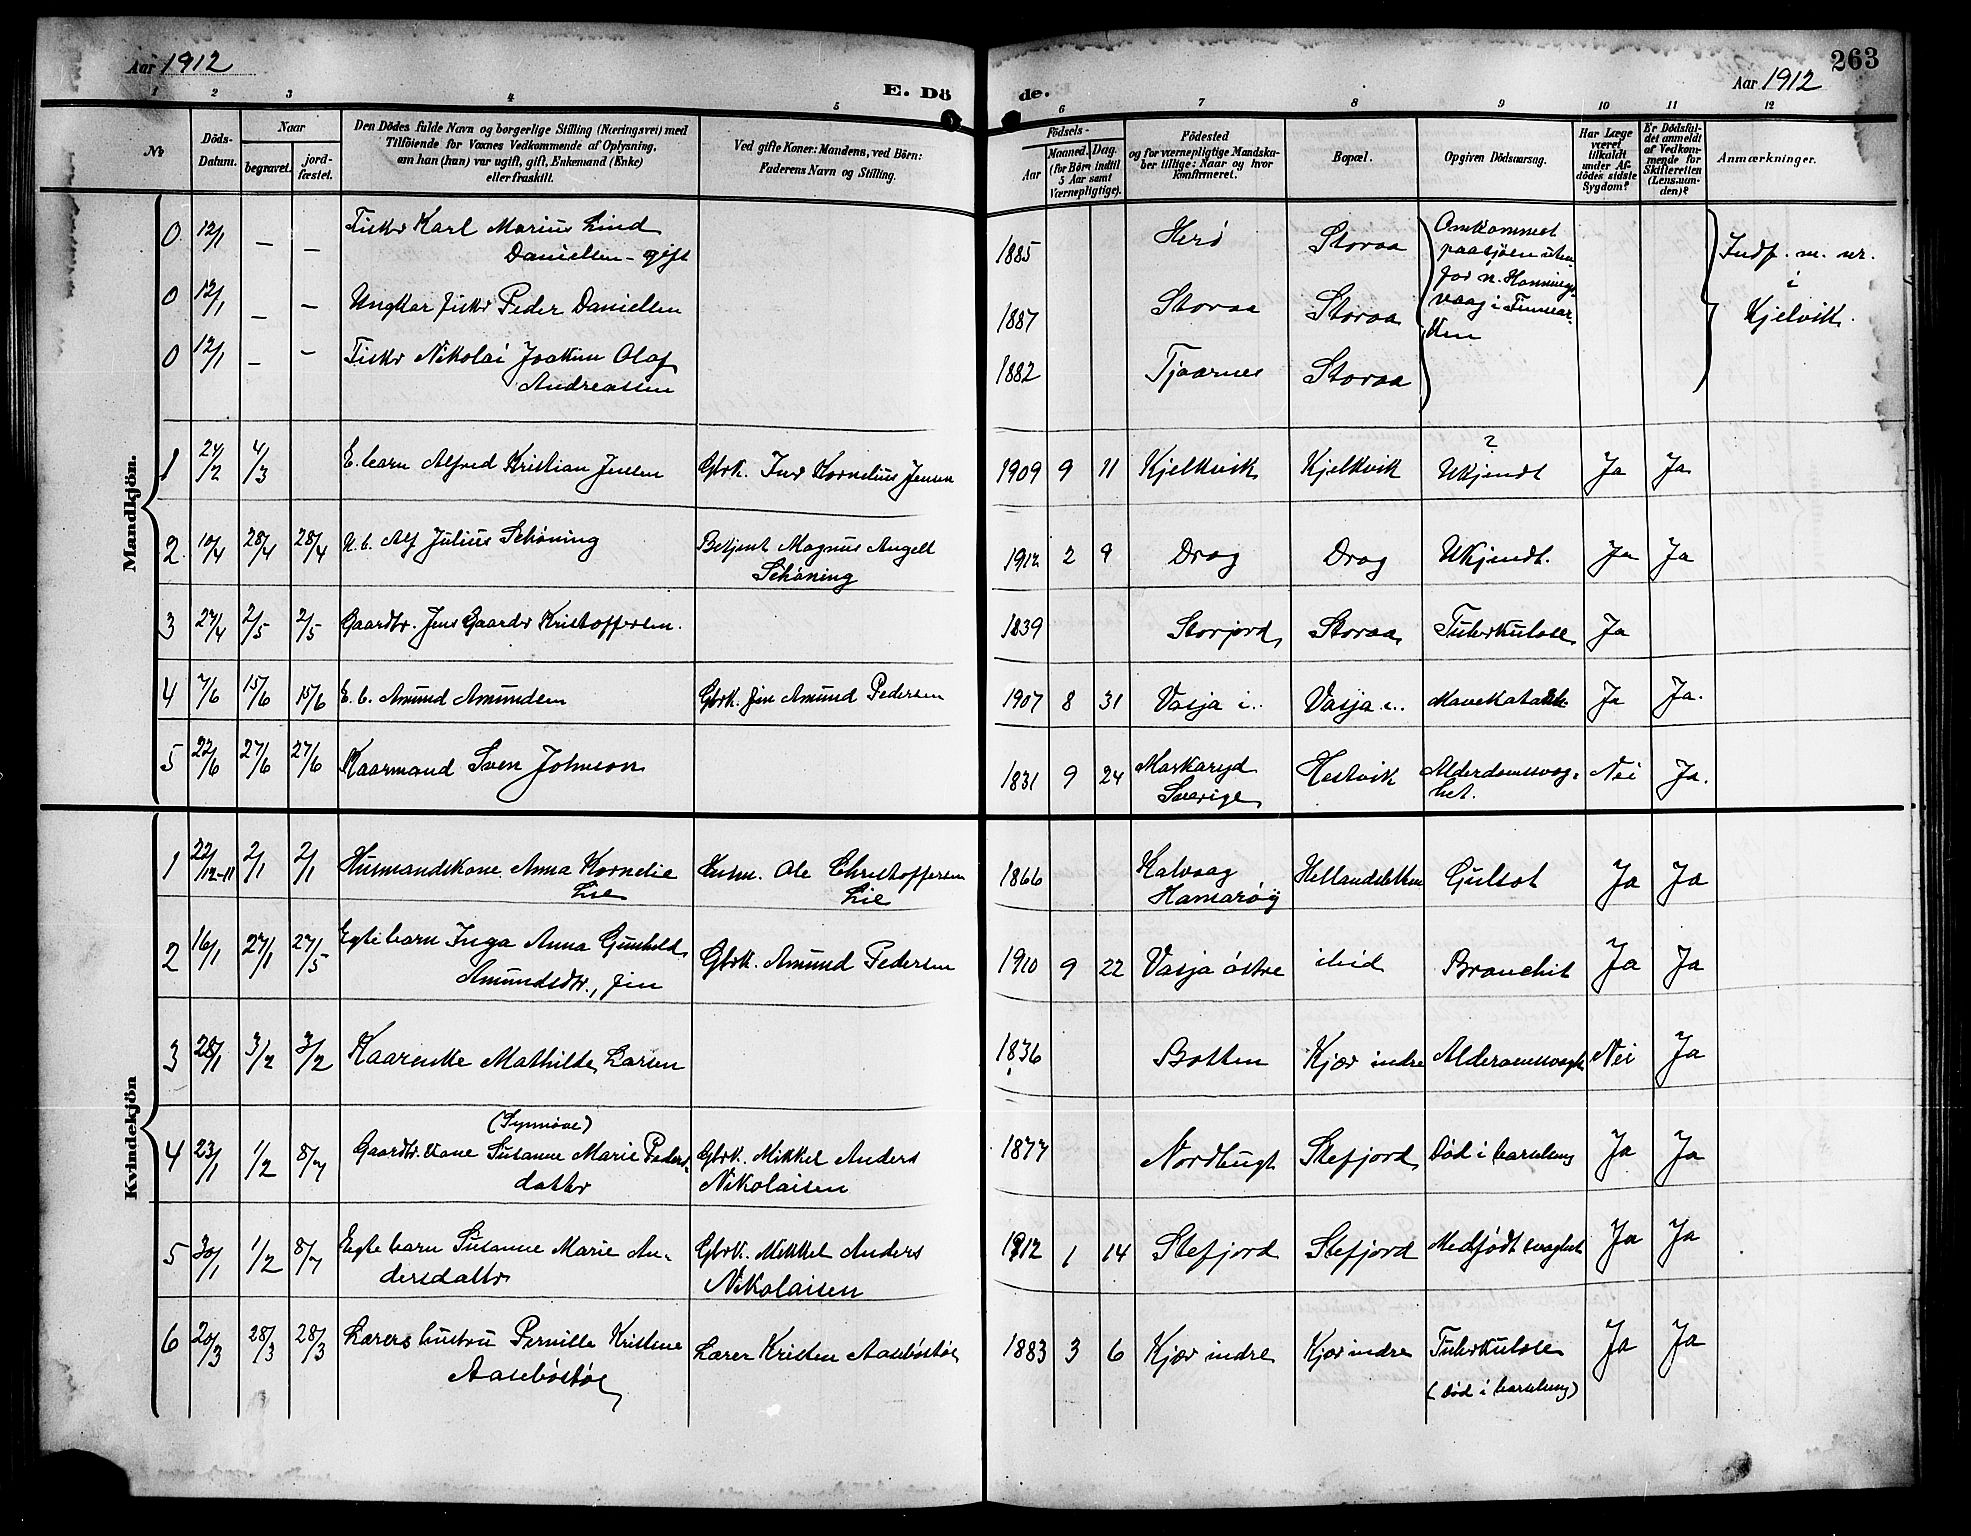 Aar 1912
E. Dö
de.
263
Aar 1912
1 2 3 4 5 6 7 8 9 10 11 12
No
Döds-
Datum.
Naar
begravet.
jord-
fæstet.
Den Dödes fulde Navn og borgerlige Stilling (Næringsvei) med
Tilföiende for Voxnes Vedkommende af Oplysning,
om han (hun) var ugift, gift, Enkemand (Enke)
eller fraskilt.
Ved gifte Koner: Mandens, ved Börn:
Faderens Navn og Stilling.
Födsels-
Aar
Maaned. Dag.
(for Börn indtil
5 Aar samt
Værnepligtige).
Födested
og for værnepligtige Mandska-
ber tillige: Naar og hvor
konfirmeret.
Bopæl.
Opgiven Dödsaarsag.
Har Læge
været
tilkaldt
under Af-
dödes sidste
Sygdom?
Er Dödsfal-
det anmeldt
af Vedkom-
mende for
Skifteretten
(Lensman-
den)?
Anmærkninger.
Mandkjön.
0 12/1 – – Fiskr Karl Marius Lind
Daniellen – gift
1885 Herö Storaa
Omkommet
paa sjöen uten
for n. Honnings-
vaag i Finmar-
ken
Indf. m. nr.
i
Kjelvik.
0 12/1 – – Ungkar fiskr Peder Daniellen 1887 Storaa Storaa
0 12/1 – – Fiskr Nikolai Joakim Olaf
Andreassen
1882 Tjaarnes Storaa
1 24/2 4/3 E. barn Alfred Kristian Jensen Gbrk. Kornelius Jensen 1909 9 11 Kjelkvik Kjelkvik ? Ukjendt Ja Ja
2 10/4 28/4 28/4 Alf Julius Schöning Betjent Magnus Angell
Schöning
1912 2 9 Drag Drag Ukjendt. Ja Ja
3 27/4 2/5 2/5 Gaardbr. Jens Gaarder Kristoffersen. 1839 Storjord Storaa Tuberkulose Ja
4 7/6 15/6 15/6 E. b. Amund Amundsen Gbrk. fin Amund Pedersen 1907 8 31 Vasja i.. Vasja i.. Mavekatarrh. Ja Ja.
5 22/6 27/6 27/6 Kaarmand Sven Johnson 1831 9 24 Markaryd
Sverige
Hestvik Alderdomssvag-
het.
Nei Ja.
Kvindekjön
1 22/12-11 2/1 2/1 Husmandskone Anna Kornelie
Lie
Husm. Ole Christoffersen
Lie
1866 Kalvaag
Hamaröy
Hellandsletten Gulsot Ja Ja
2 16/1 27/1 27/5 Egtebarn Inga Anna Gunhild
Amundsdtr., fin
Gbrk. Amund Pedersen 1910 9 22 Vasja östre ibid Bronchit Ja Ja
3 28/1 3/2 3/2 Kaarenke Mathilde Larsen 1836 Botten Kjær indre Nei Ja
4 23/1 1/2 8/7 (Synnöve)
Gaardbr. kone Susanne Marie Peders-
datter
Gbrk. Mikkel Anders
Nikolaisen
1877 Nordbugt Stefjord Död i barselseng Ja Ja
5 30/1 1/2 8/7 Egtebarn Susanne Marie An-
dersdatter
Gbrk. Mikkel Anders
Nikolaisen
1912 1 14 Stefjord Stefjord Medfödt svaghet Ja Ja
6 20/3 28/3 28/3 Lærers hustru Pernille Kristine
Aaseböstöl
Lærer Kristen Aaseböstöl 1883 3 6 Kjær indre Kjær indre Tuberkulose
(död i barselseng)
Ja Ja